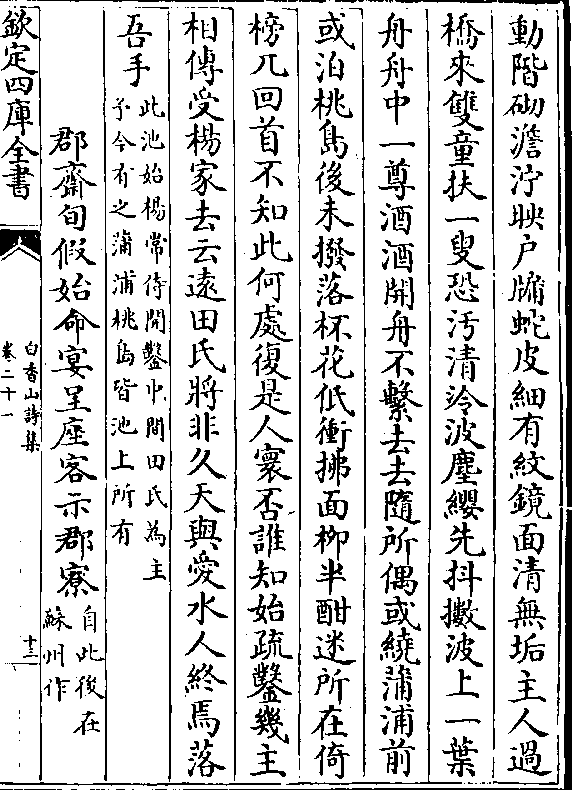 動階砌澹泞映戸牗蛇皮細有紋鏡面清無垢主人過
橋來雙童扶一叟恐汚清泠波塵纓先抖擻波上一葉
舟舟中一尊酒酒開舟不繫去去隨所偶或繞蒲浦前
或泊桃島後未撥落杯花低衝拂面柳半酣迷所在倚
榜兀回首不知此何處復是人寰否誰知始疏鑿幾主
相傳受楊家去云遠田氏將非久天與愛水人終焉落
吾手
此池始楊常侍開鑿中間田氏為主
予今有之蒲浦桃島皆池上所有
郡齋旬假始命宴呈座客示郡寮
自此後在
蘇州作
欽定四庫全書
白香山詩集
卷二十一
十三